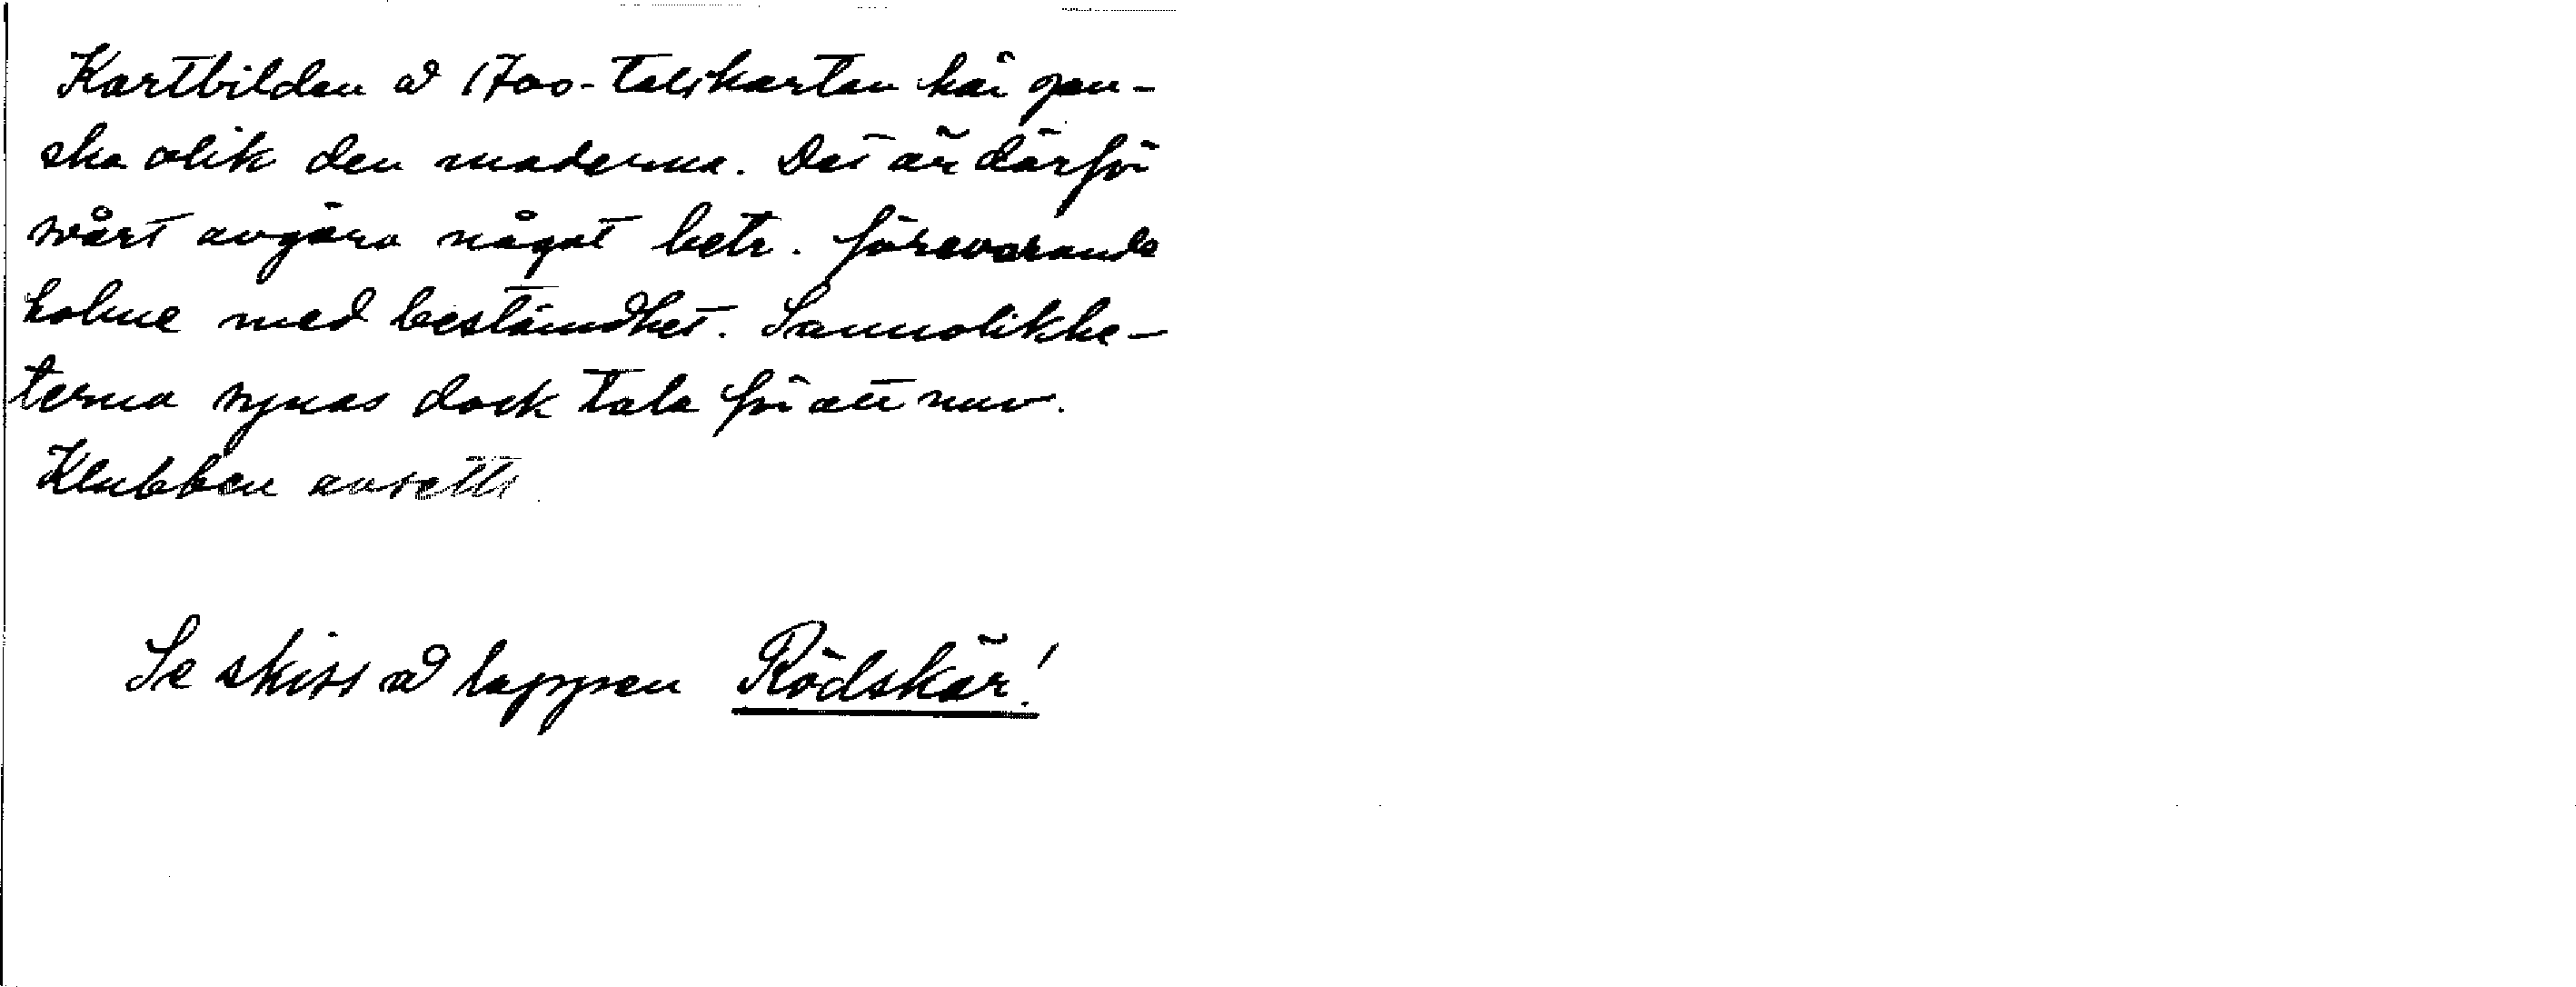 Kartbilden å 1700-talskartan här gan-
ska olik den moderna. Det är därför
svårt avgöra något betr. förevarande
holme med bestämdhet. Sannolikhe-
terna synas dock tala för att nuv.
Klubben avsetts.
Se skiss å lappen Rödskär!